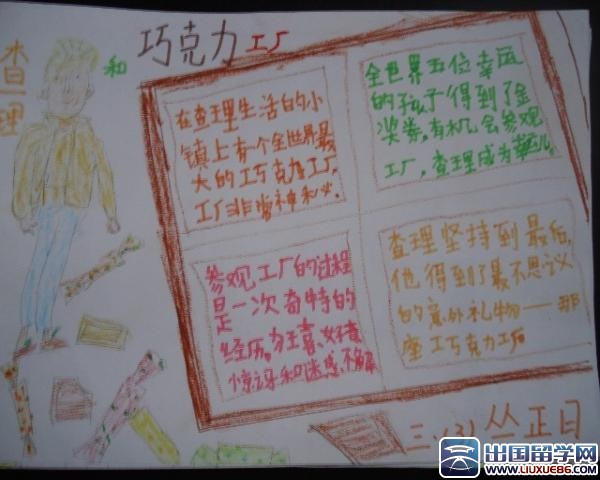 查理
和
巧克力工厂
在查理生活的小
镇上有个全世界最
大的工巧克力工厂,
工厂非常神秘.
全世界五位幸运
的孩子得到了金
奖券,有机会参观
工厂,查理成为幸
参观工厂的过程
是一次奇特的
经历。
惊讶和迷惑不解
查理坚持到最后,
他得到了最不思议
的意外礼物——那
座工巧克力工厂
三.(3) 丛正日
出国留学网
WWW.LIUXUE86.COM